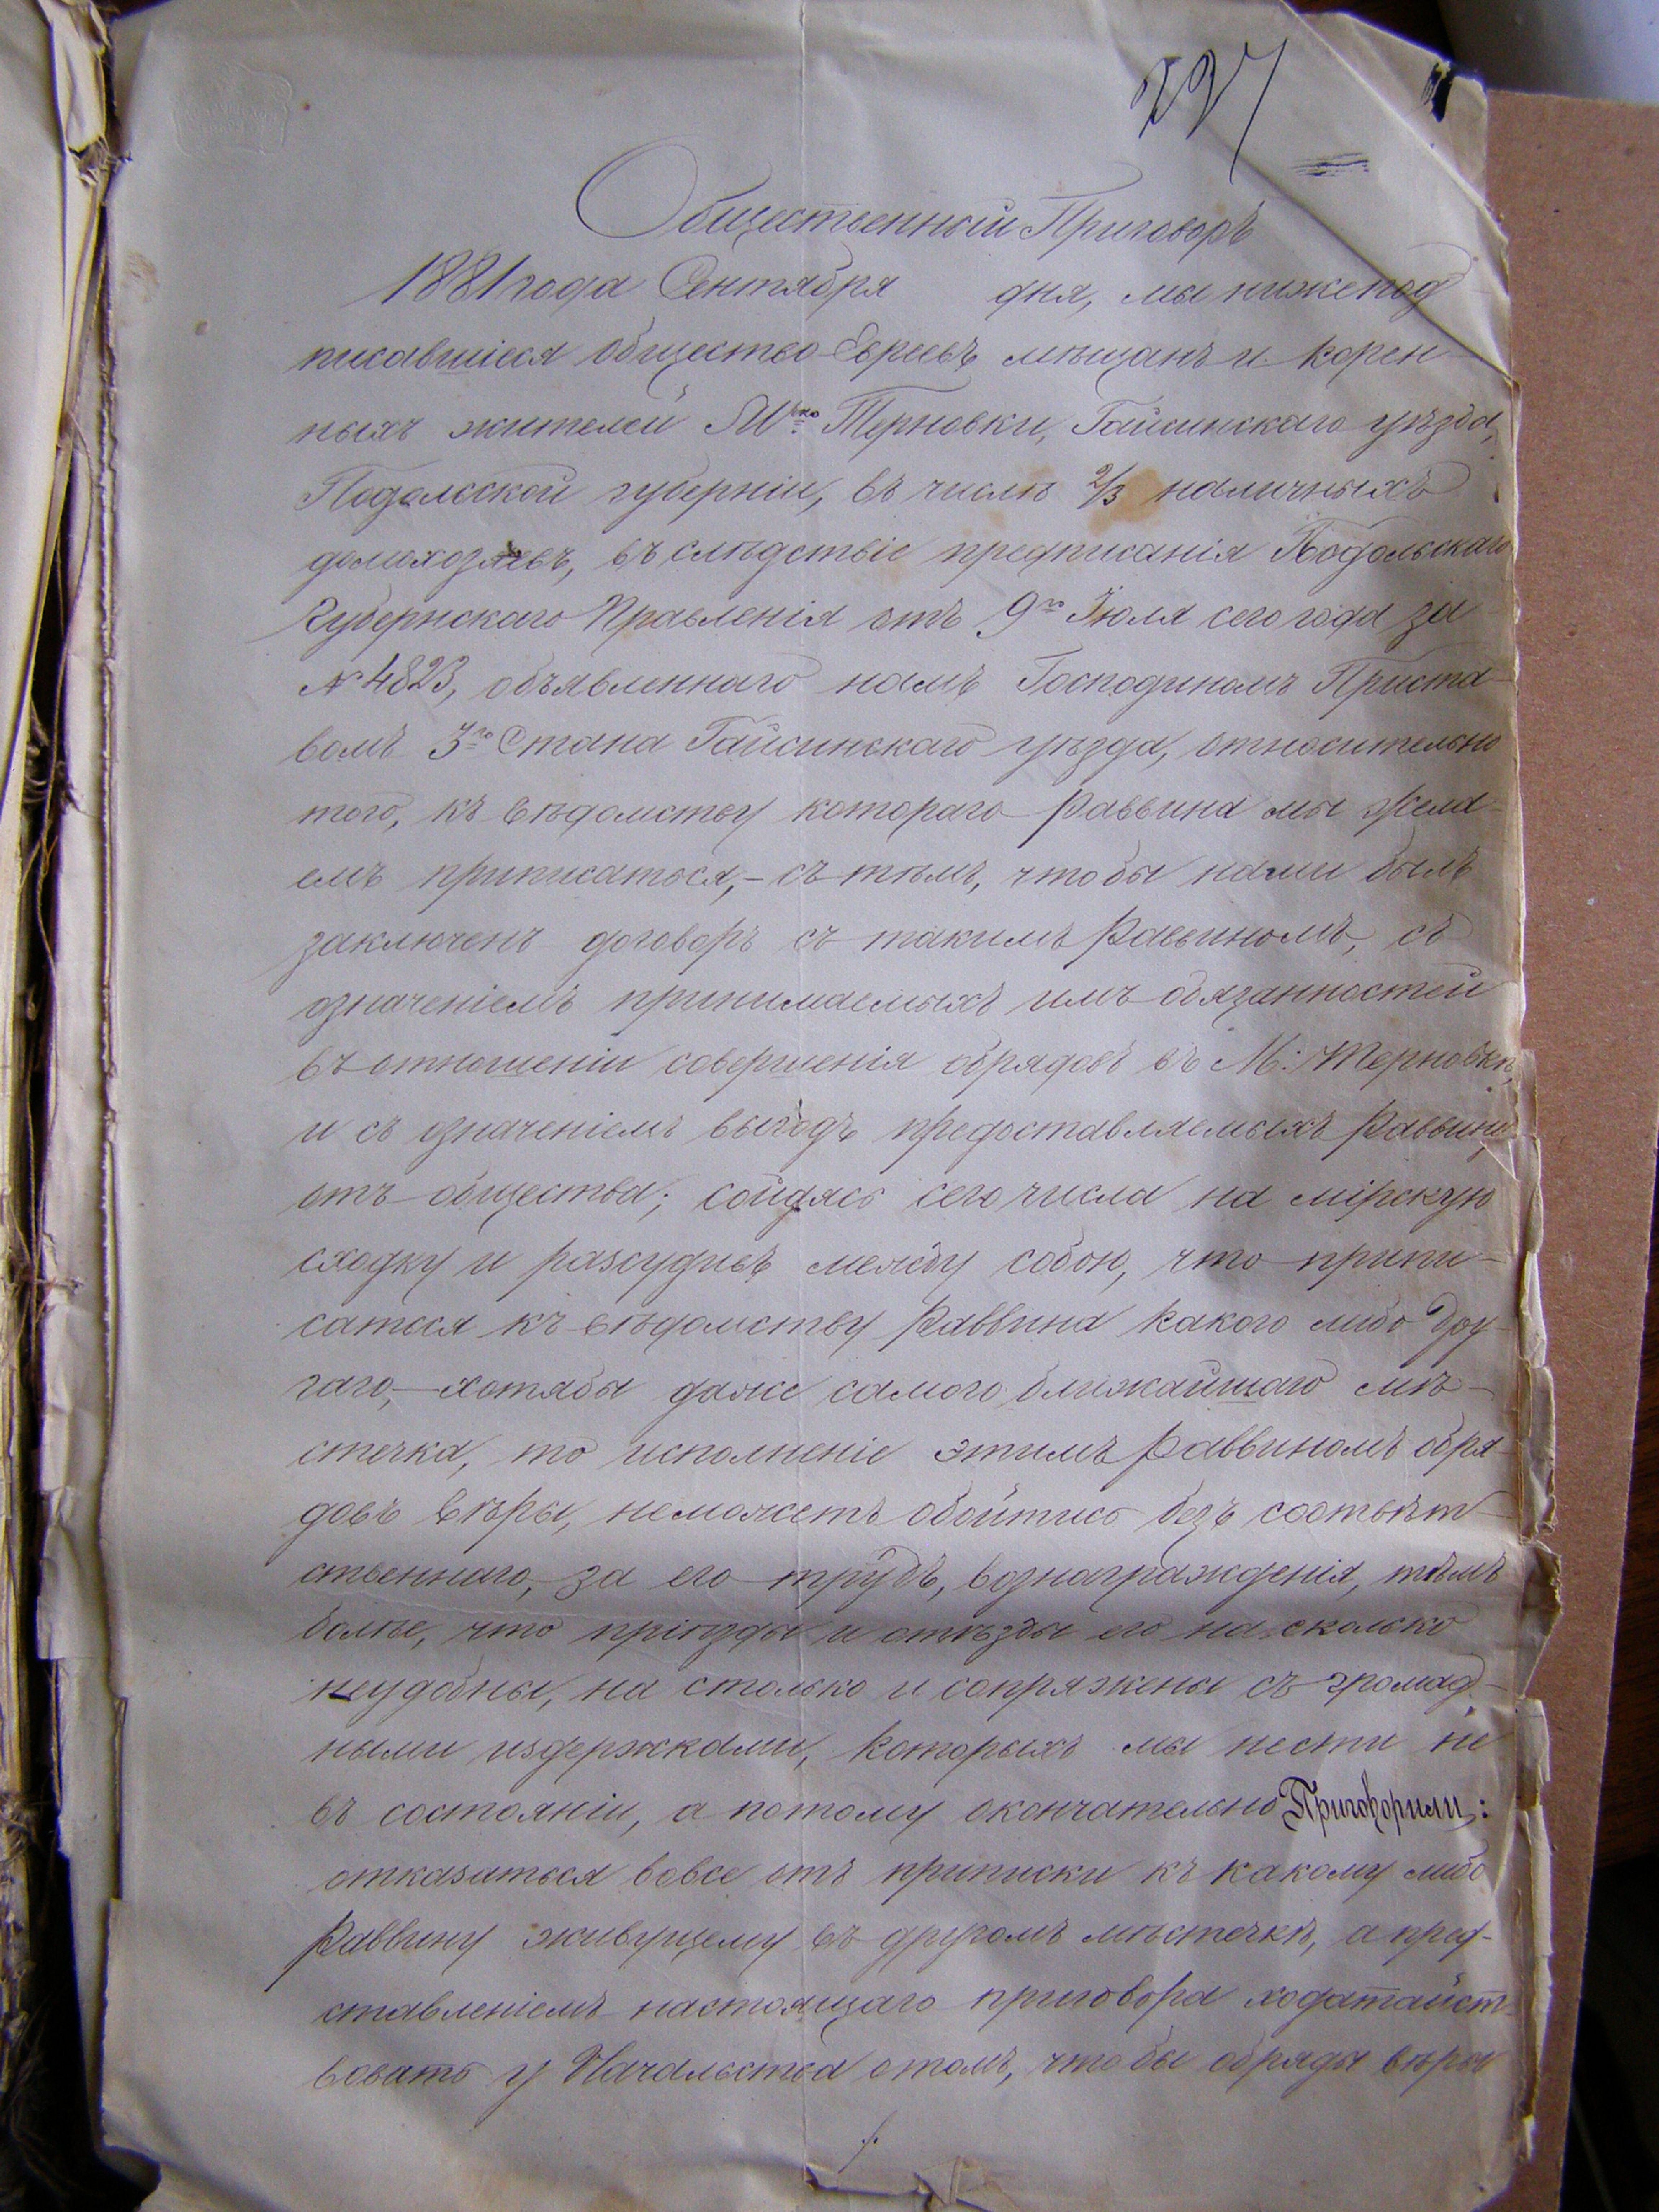 237
Общественный Приговоръ
1881 года Сентября дня, мы нижепод
писавшіеся общество Евреевъ мѣщанъ и корен-
ныхъ жителей М-ка Терновки, Гайсинскаго уѣзда,
Подольской губерніи, въ числѣ 2/3 наличныхъ
домохозяевъ, въ слѣдствіе предписанія Подольскаго
Губернскаго Правленія отъ 9го Іюля сего года за
№ 4823, объявленнаго намъ Господиномъ Приста-
вомъ 3го Стана Гайсинскаго уѣзда, относительно
того, къ вѣдомству котораго Раввина мы жела-
емъ приписаться,- съ тѣмъ, чтобы нами былъ
заключенъ договоръ съ такимъ Раввиномъ, съ
означеніемъ принимаемыхъ имъ обязанностей
въ отношеніи совершенія обрядовъ въ М: Терновкѣ,
и съ означеніемъ выгодъ предоставляемыхъ Раввину
отъ общества; сойдясь сего числа на мірскую
сходку и разсудивъ между собою, что припи-
саться къ вѣдомству Раввина какого либо дру-
гаго,- хотябы даже самого ближайшаго мѣ-
стечка, то исполненіе этимъ Раввиномъ обря-
довъ вѣры, неможетъ обойтись безъ соотвѣт-
ственнаго, за его трудъ, вознагражденія, тѣмъ
болѣе, что пріѣзды и отъѣзды его на сколько
неудобны, на столько и сопряжены съ громад-
ными издержками, которыхъ мы нести не
въ состояніи, а потому окончательно Приговорили:
отказаться вовсе отъ приписки къ какому либо
Раввину живущему въ другомъ мѣстечкѣ, а пред-
ставленіемъ настоящаго приговора ходатайст-
вовать у Начальства отомъ, чтобы обряды вѣры